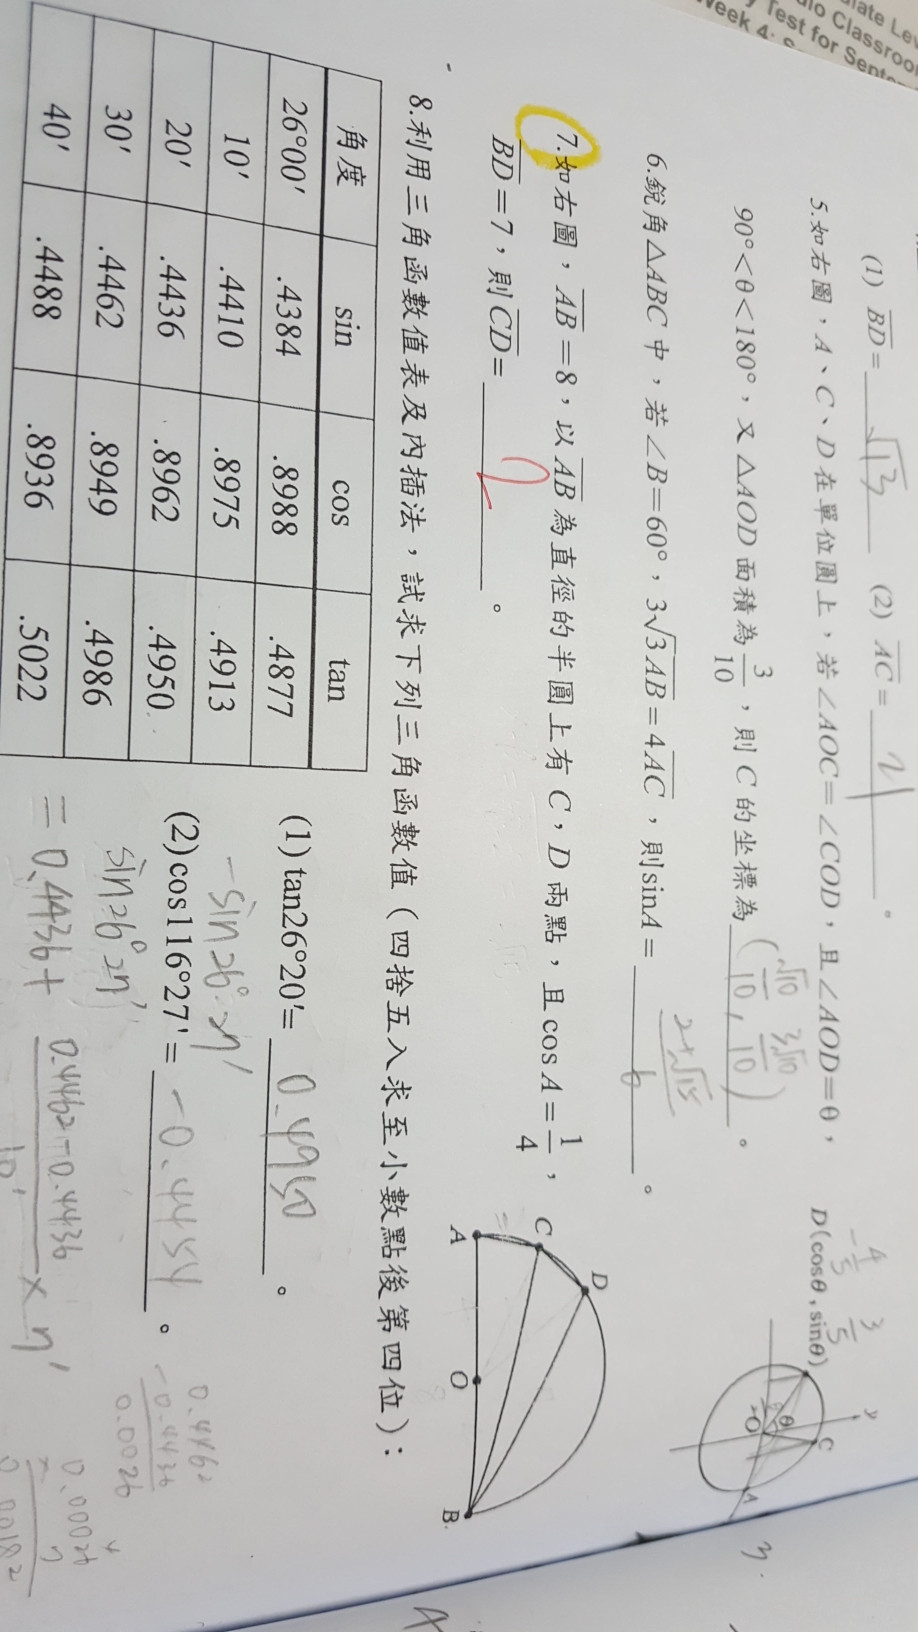 late Lev
dio Classroo
y Test for Septe
Week 4:
(1) BD= √13 (2) AC= 2 。
5.如右圖，A、C、D在單位圓上，若∠AOC=∠COD，且∠AOD=θ，
90°<θ<180°，又△AOD面積為3/10，則C的坐標為 (√10/10, 3√10/10) 。
-4/5 3/5
D(cosθ,sinθ)
y
C
θ
O
A
3.
6.銳角△ABC中，若∠B=60°，3√3AB=4AC，則sinA= 2+√15/6 。
7.如右圖，AB=8，以AB為直徑的半圓上有C，D兩點，且cosA=1/4，
BD=7，則CD= 2 。
D
C
A
O
B
8.利用三角函數值表及內插法，試求下列三角函數值（四捨五入求至小數點後第四位）：
角度 sin cos tan
26°00′ .4384 .8988 .4877
10′ .4410 .8975 .4913
20′ .4436 .8962 .4950
30′ .4462 .8949 .4986
40′ .4488 .8936 .5022
(1)tan26°20′= 0.4950 。
-sin26°27′
(2)cos116°27′= -0.4454 。
sin26°27′
= 0.4436+ 0.4462-0.4436/10′ × 7′
0.4462
-0.4436
0.0026
0.0026
× 7
0.00182